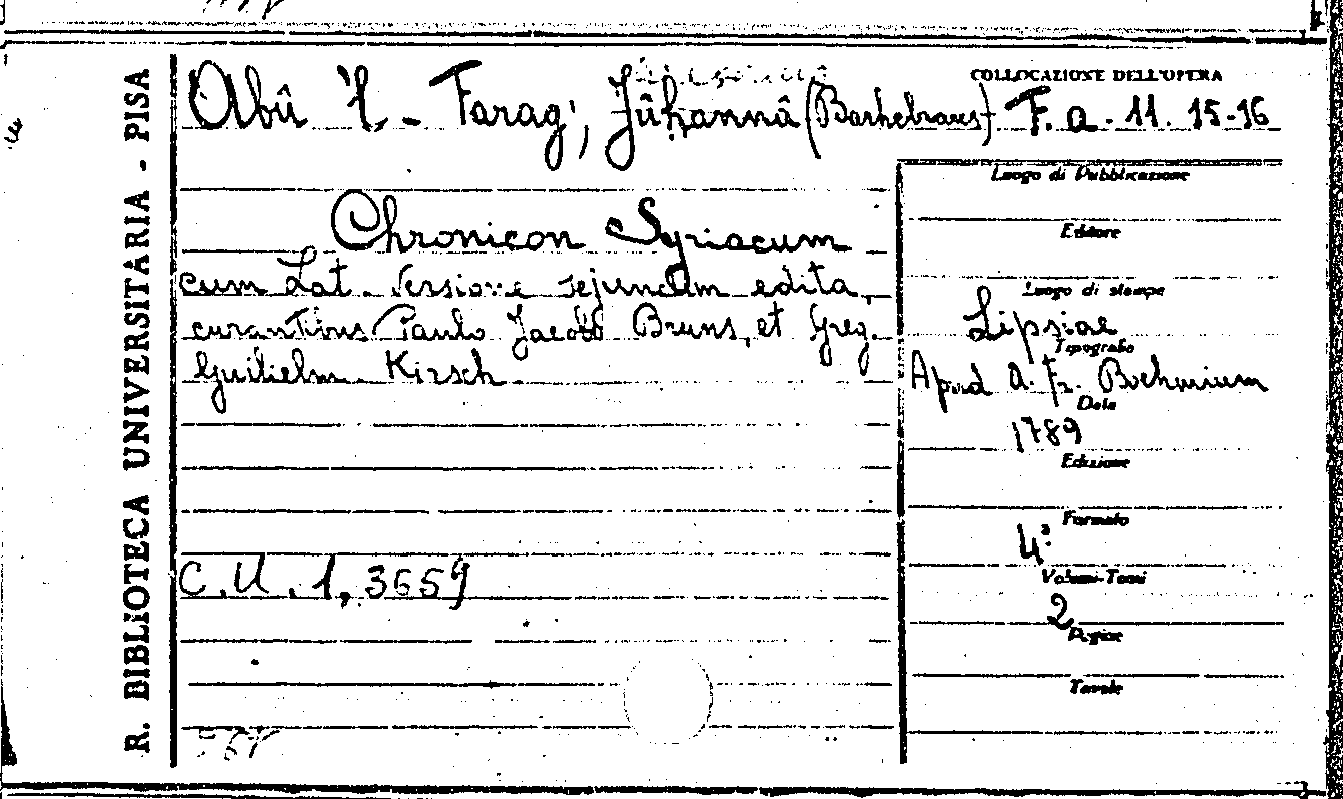 R. BIBLIOTECA UNIVERSITARIA - PISA
Abû 'l - Farag', Jûhannâ (Barhebraeus)
COLLOCAZIONE DELL'OPERA
F. a. 11. 15-16
Chronicon Syriacum
cum Lat. Versione sejunctim edita,
curantibus Paulo Jacobo Bruns, et Greg.
Guilielm. Kirsch
C.U. 1, 3659
Luogo di Pubblicazione
Editore
Luogo di stampa
Lipsiae
Tipografo
Apud A. Fr. Boehmium
Data
1789
Edizione
Formato
4°
Volumi-Tomi
2
Pagine
Tavole